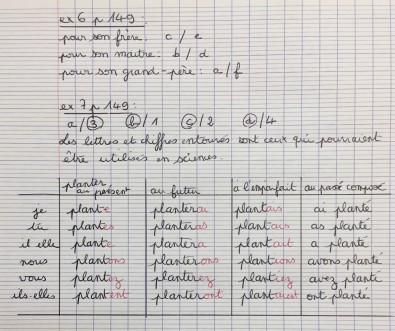 ex 6 p 149 :
pour son frère : c / e
pour son maître : b / d
pour son grand-père : a / f
ex 7 p 149 :
a / 3 b / 1 c / 2 d / 4
Les lettres et chiffres entourés sont ceux qui pourraient
être utilisés en sciences.
planter
au présent au futur à l'imparfait au passé composé
je plante planterai plantais ai planté
tu plantes planteras plantais as planté
il elle plante plantera plantait a planté
nous plantons planterons plantions avons planté
vous plantez planterez plantiez avez planté
ils-elles plantent planteront plantaient ont planté